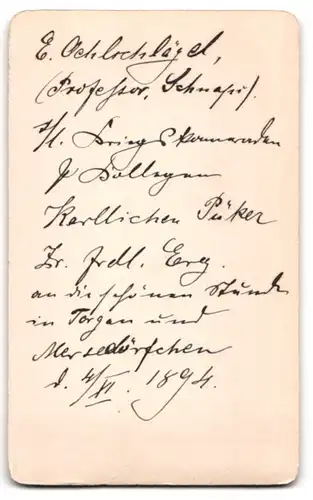 E. Oehlschlägel,
(Professor, Schnaps).
s/l. Kriegskameraden
& Kollegen
Karllichen Püker
Zr. frdl. Erg.
an die schönen Stunden
in Torgau und
Mersedörfchen
d. 4/VI. 1894.